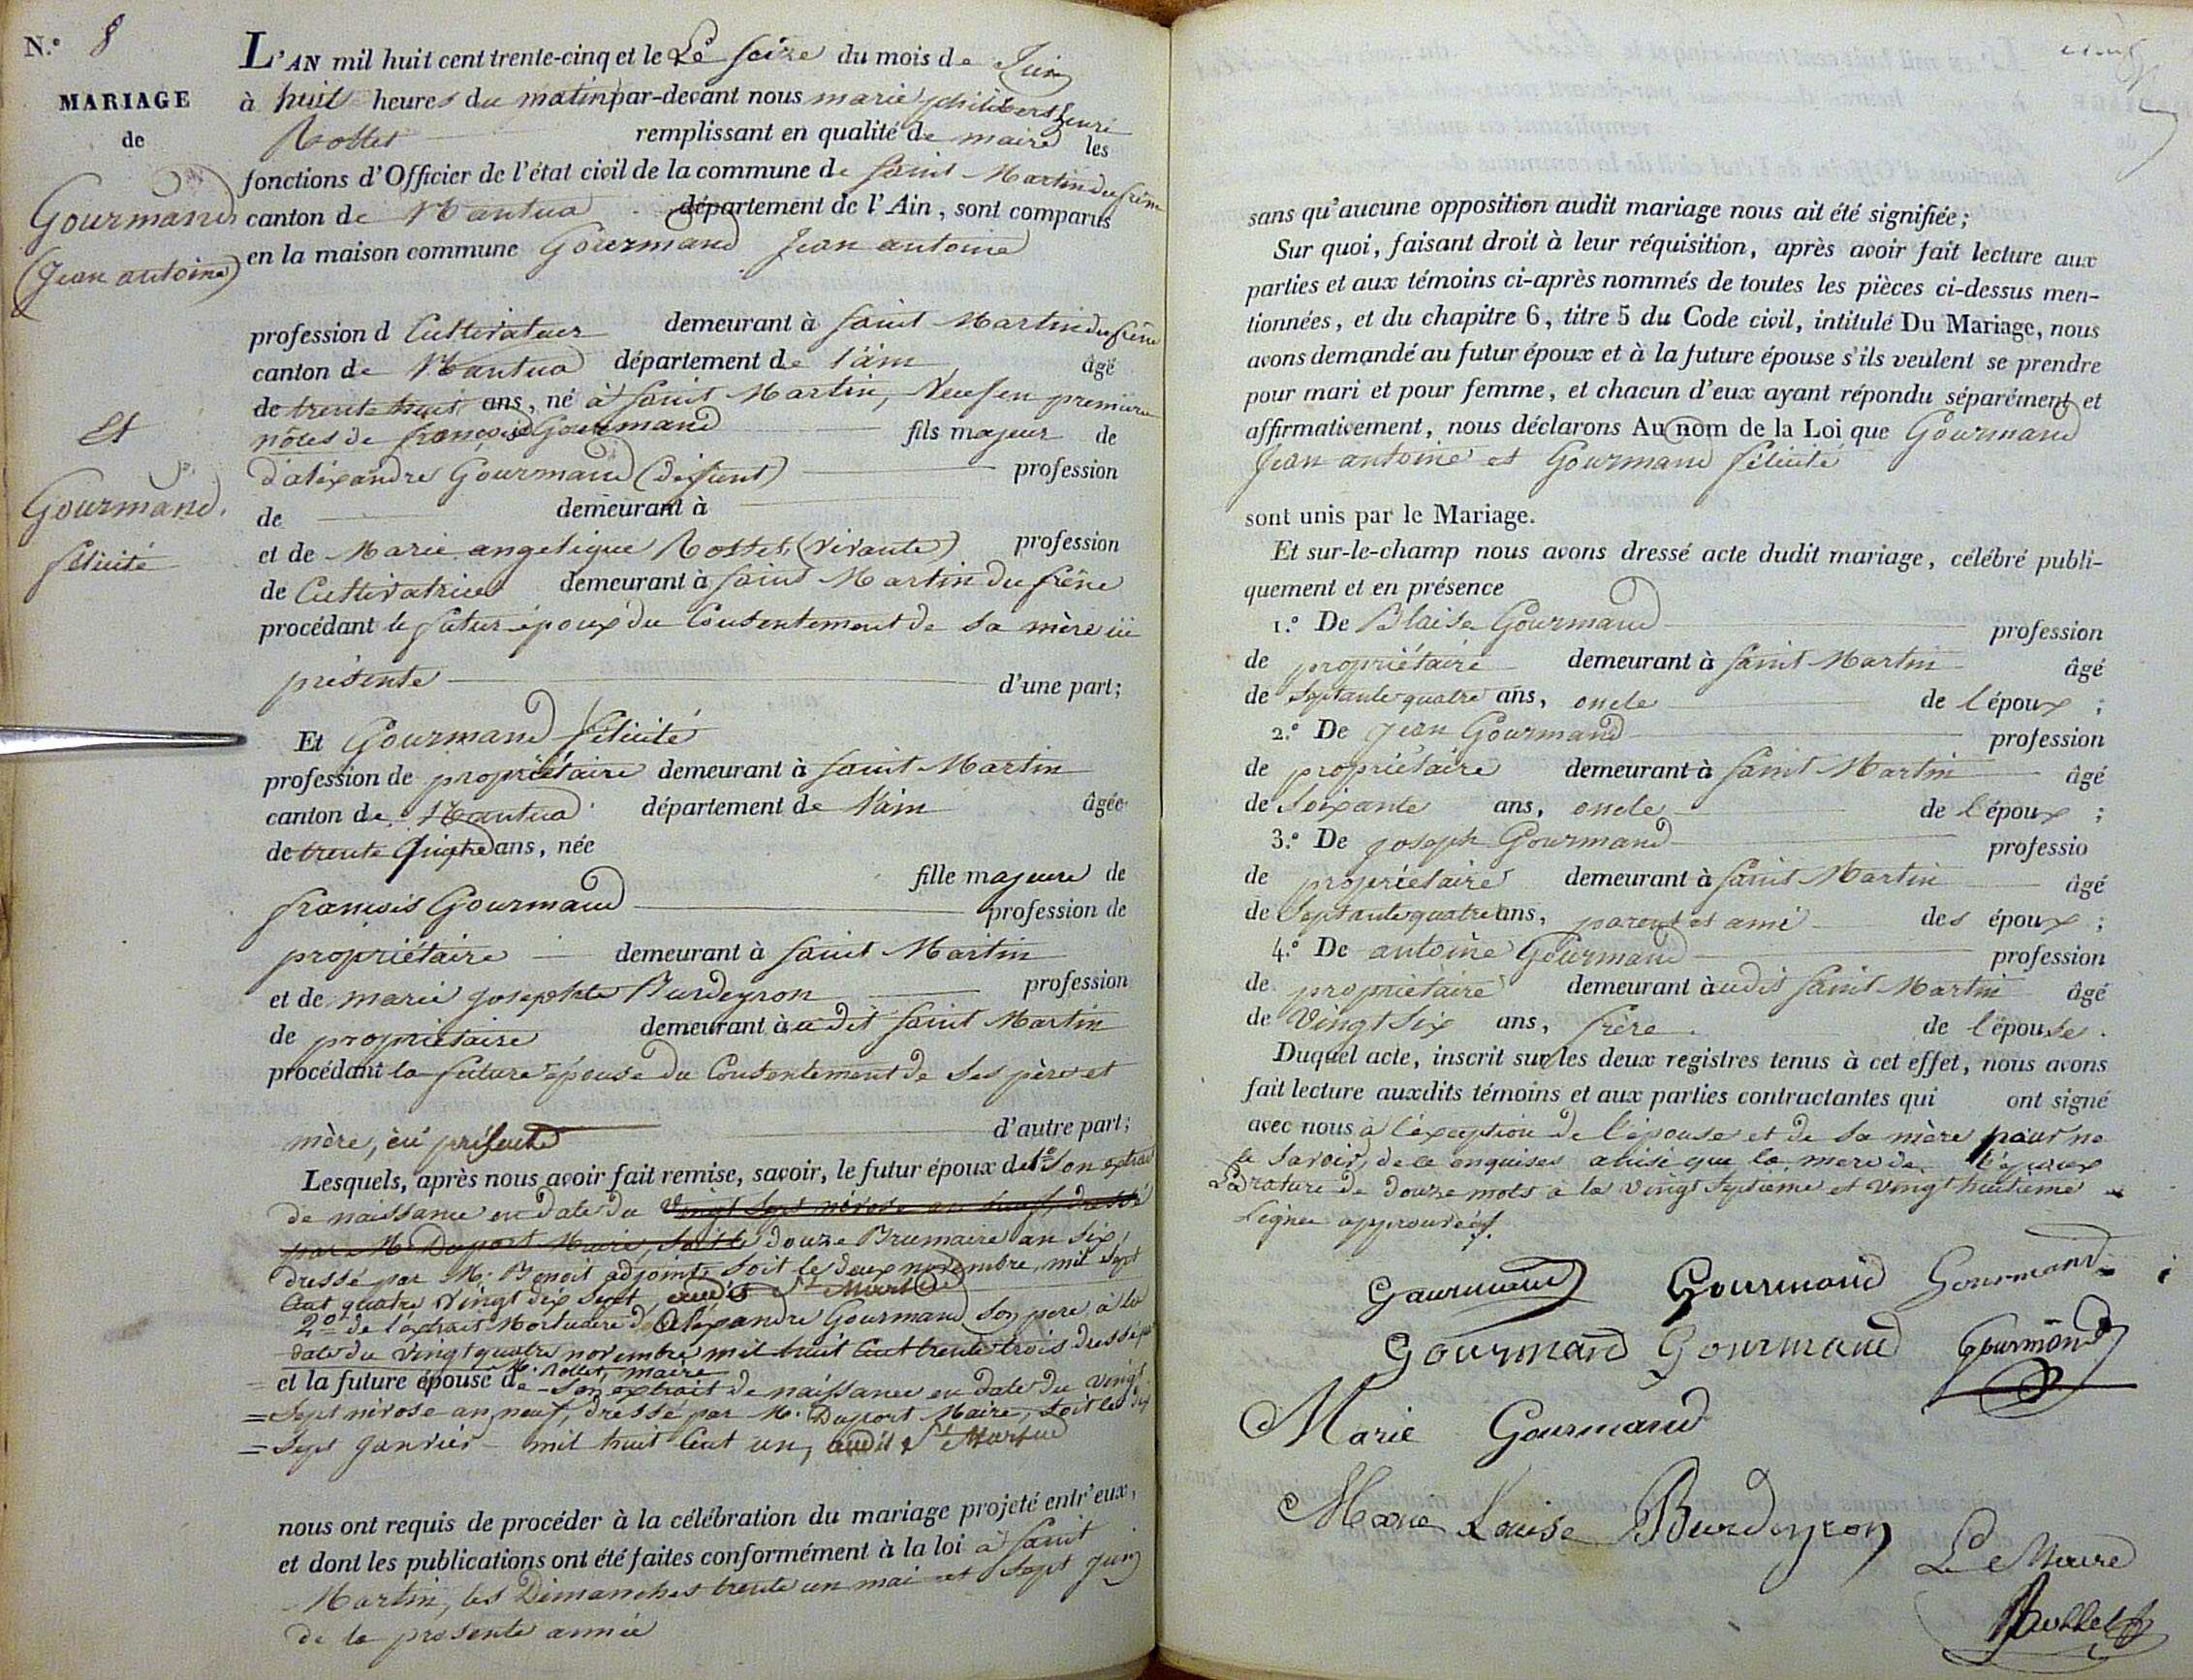 N.º 8
MARIAGE
de
Gourmand
(Jean antoine)
Et
Gourmand
félicité
L'AN mil huit cent trente-cinq et le Le seize du mois de Juin
à huit heures du matin par-devant nous marie philibert henri
Rollet remplissant en qualité de maire les
fonctions d'Officier de l'état civil de la commune de Saint Martin du frêne
canton de Nantua département de l'Ain, sont comparus
en la maison commune Gourmand Jean antoine
profession d Cultivateur demeurant à Saint Martin du frêne
canton de Nantua département de l'ain âgé
de trente huit ans, né à Saint Martin, Veuf en première
nôces de françoise Gourmand fils majeur de
d'aléxandre Gourmand (défunt) profession
de demeurant à
et de Marie angelique Rollet (vivante) profession
de Cultivatrice demeurant à Saint Martin du frêne
procédant le futur époux du Consentement de sa mère ici
présente d'une part;
Et Gourmand félicité
profession de propriétaire demeurant à Saint Martin
canton de Nantua département de l'ain âgée
de trente quatre ans, née
fille majeure de
françois Gourmand profession de
propriétaire demeurant à Saint Martin
et de marie josephte Burdeyron profession
de propriétaire demeurant à udit Saint Martin
procédant la future épouse du Consentement de ses père et
mère, ici présents d'autre part;
Lesquels, après nous avoir fait remise, savoir, le futur époux de 1º Son extrait
de naissance en date du vingt sept nivose an neuf dressé
par M. Duport Maire, soit le douze Brumaire an six,
dressé par M. Benoit adjoint, soit le deux novembre, mil sept
Cent quatre vingt dix sept, audit St Martin
2º de l'extrait Mortuaire d'Aléxandre Gourmand son père à la
date du vingt quatre novembre mil huit Cent trente trois dressé par
M. Rollet, maire
et la future épouse de Son extrait de naissance en date du vingt
= Sept nivose an neuf, dressé par M. Duport Maire, soit le dix
= Sept janvier mil huit Cent un, audit St Martin
nous ont requis de procéder à la célébration du mariage projeté entr'eux,
et dont les publications ont été faites conformément à la loi à Saint
Martin, les Dimanches trente un mai et sept juin
de la présente année
sans qu'aucune opposition audit mariage nous ait été signifiée;
Sur quoi, faisant droit à leur réquisition, après avoir fait lecture aux
parties et aux témoins ci-après nommés de toutes les pièces ci-dessus men-
tionnées, et du chapitre 6, titre 5 du Code civil, intitulé Du Mariage, nous
avons demandé au futur époux et à la future épouse s'ils veulent se prendre
pour mari et pour femme, et chacun d'eux ayant répondu séparément et
affirmativement, nous déclarons Au nom de la Loi que Gourmand
Jean antoine et Gourmand félicité
sont unis par le Mariage.
Et sur-le-champ nous avons dressé acte dudit mariage, célébré publi-
quement et en présence
1.º De Blaise Gourmand profession
de propriétaire demeurant à Saint Martin âgé
de Septante quatre ans, oncle de l'époux ;
2.º De Jean Gourmand profession
de propriétaire demeurant à Saint Martin âgé
de Soixante ans, oncle de l'époux ;
3.º De joseph Gourmand professio
de propriétaire demeurant à Saint Martin âgé
de Septante quatre ans, parent et ami des époux ;
4.º De antoine Gourmand profession
de propriétaire demeurant à udit Saint Martin âgé
de Vingt Six ans, frère de l'épouse.
Duquel acte, inscrit sur les deux registres tenus à cet effet, nous avons
fait lecture auxdits témoins et aux parties contractantes qui ont signé
avec nous à l'éxception de l'épouse et de sa mère pour ne
le savoir, de ce enquises ainsi que la mère de l'époux
La rature de douze mots à la vingt septième et vingt huitième
Lignes approuvées.
Gourmand Gourmand Gourmand
Gourmand Gourmand Gourmand
Marie Gourmand
Marie Louise Burdeyron
Le Maire
Rollet